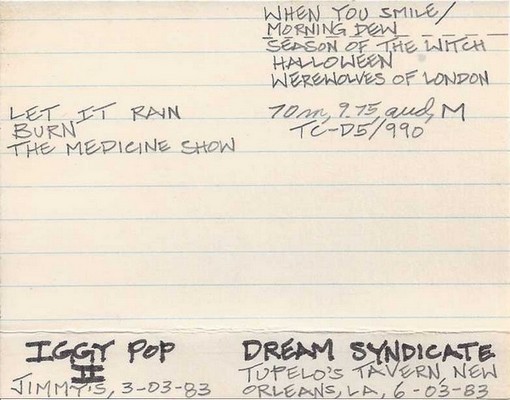 WHEN YOU SMILE/
MORNING DEW
SEASON OF THE WITCH
HALLOWEEN
WEREWOLVES OF LONDON
LET IT RAIN
BURN
THE MEDICINE SHOW
70m, 9.75, aud, M
TC-D5/990
IGGY POP
II
JIMMY'S, 3-03-83
DREAM SYNDICATE
TUPELO'S TAVERN, NEW
ORLEANS, LA, 6-03-83